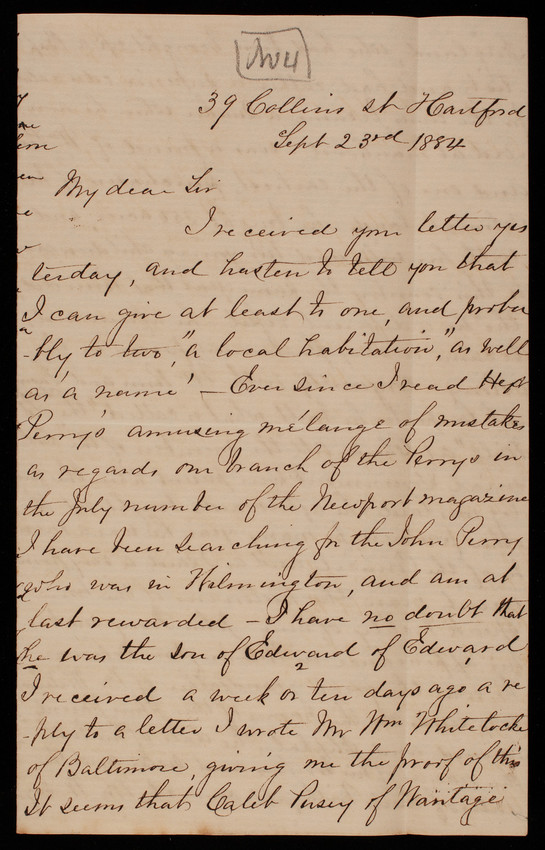 No 4
39 Collins st Hartford
Sept 23rd 1884
My dear Sir
I received your letter yes
terday, and hasten to tell you that
I can give at least to one, and proba
-bly to two, "a local habitation," as well
as 'a name' – Ever since I read
Perry's amusing mélange of mistakes
as regards our branch of the Perrys in
the July number of the Newport magazine
I have been searching for the John Perry
who was in Wilmington, and am at
last rewarded – I have no doubt that
he was the son of Edward2 of Edward1
I received a week or ten days ago a re
-ply to a letter I wrote Mr Wm Whitelocke
of Baltimore, giving me the proof of this
It seems that Caleb Pusey of Wantage